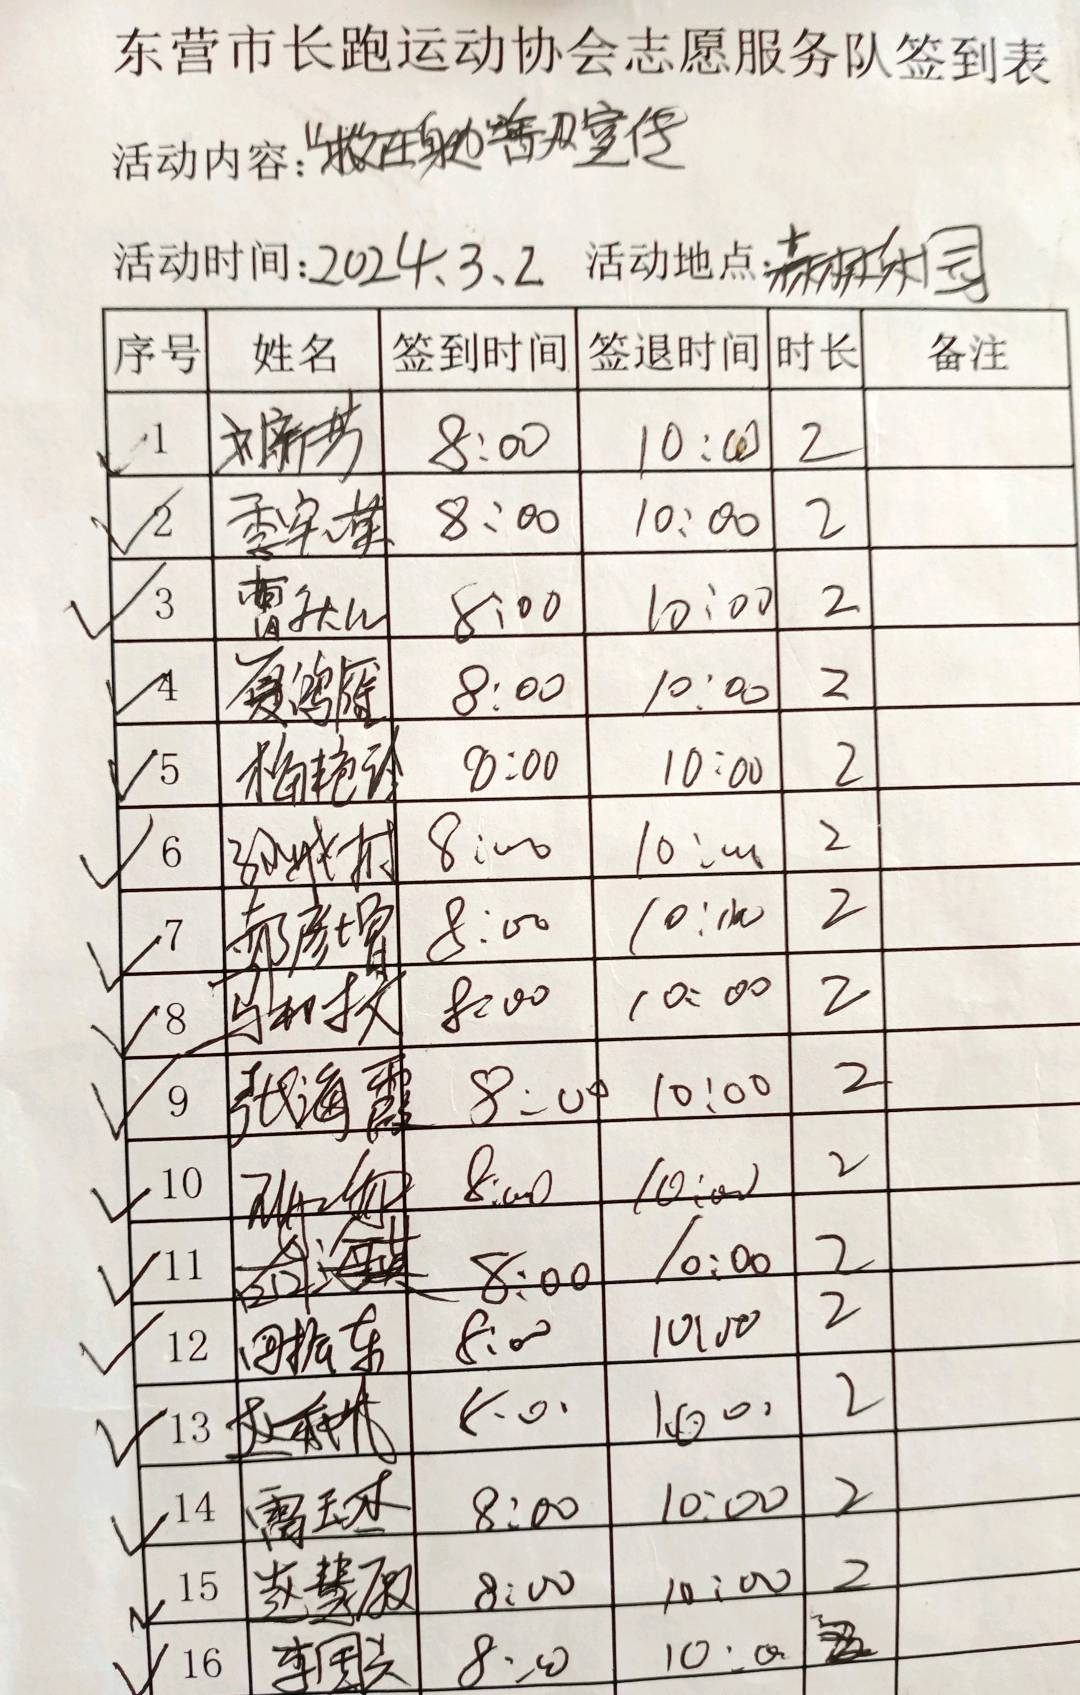 东营市长跑运动协会志愿服务队签到表
活动内容:"救在身边"普及宣传
活动时间:2024.3.2 活动地点:森林公园
序号 姓名 签到时间 签退时间 时长 备注
1 刘新芳 8:00 10:00 2
2 8:00 10:00 2
3 曹 8:00 10:00 2
4 夏鸿雁 8:00 10:00 2
5 梅艳玲 8:00 10:00 2
6 8:00 10:00 2
7 郝彦增 8:00 10:00 2
8 8:00 10:00 2
9 张海霞 8:00 10:00 2
10 8:00 10:00 2
11 8:00 10:00 2
12 田振东 8:00 10:00 2
13 8:00 10:00 2
14 8:00 10:00 2
15 赵慧敏 8:00 10:00 2
16 李国兴 8:00 10:00